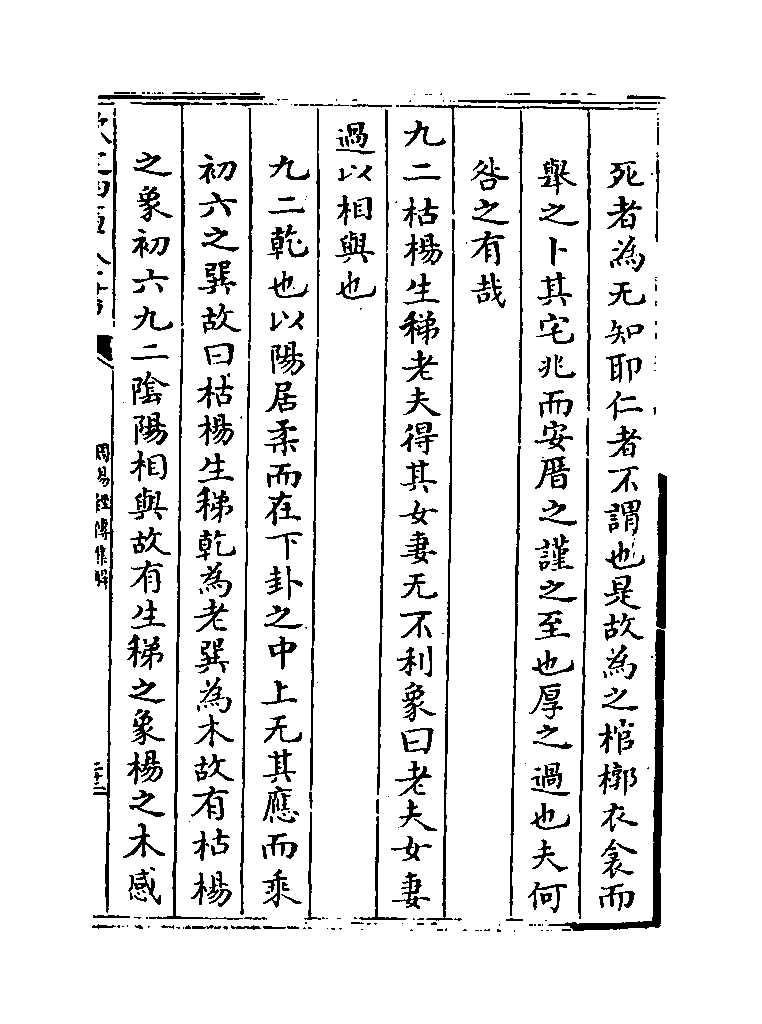 死者為无知耶仁者不謂也是故為之棺槨衣衾而
舉之卜其宅兆而安厝之謹之至也厚之過也夫何
咎之有哉
九二枯楊生稊老夫得其女妻无不利象曰老夫女妻
過以相與也
九二乾也以陽居柔而在下卦之中上无其應而乘
初六之巽故曰枯楊生稊乾為老巽為木故有枯楊
之象初六九二陰陽相與故有生稊之象楊之木感
周易經傳集解